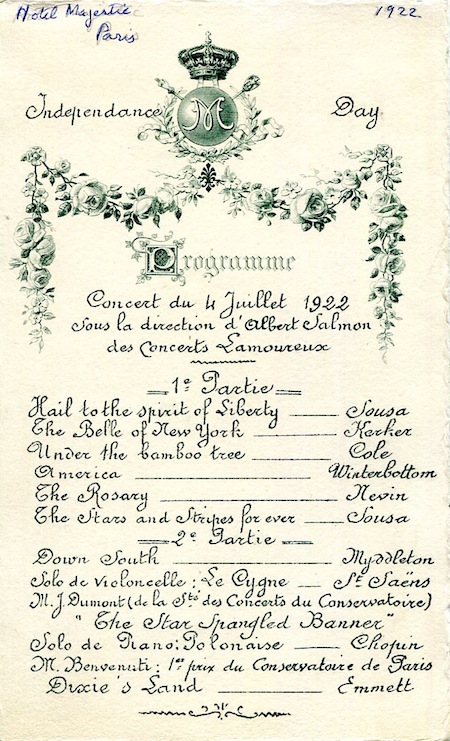 Hotel Majestic 1922
Paris
M
Independance Day
Programme
Concert du 4 Juillet 1922
Sous la direction d'Albert Salmon
des Concerts Lamoureux
1e Partie
Hail to the spirit of Liberty Sousa
The Belle of New York Kerker
Under the bamboo tree Cole
America Winterbottom
The Rosary Nevin
The Stars and Stripes for ever Sousa
2e Partie
Down South Myddleton
Solo de Violoncelle : Le Cygne St Saëns
M. J. Dumont (de la Sté des Concerts du Conservatoire)
"The Star Spangled Banner"
Solo de Piano : Polonaise Chopin
M. Benvenuti : 1er prix du Conservatoire de Paris
Dixie's Land Emmett